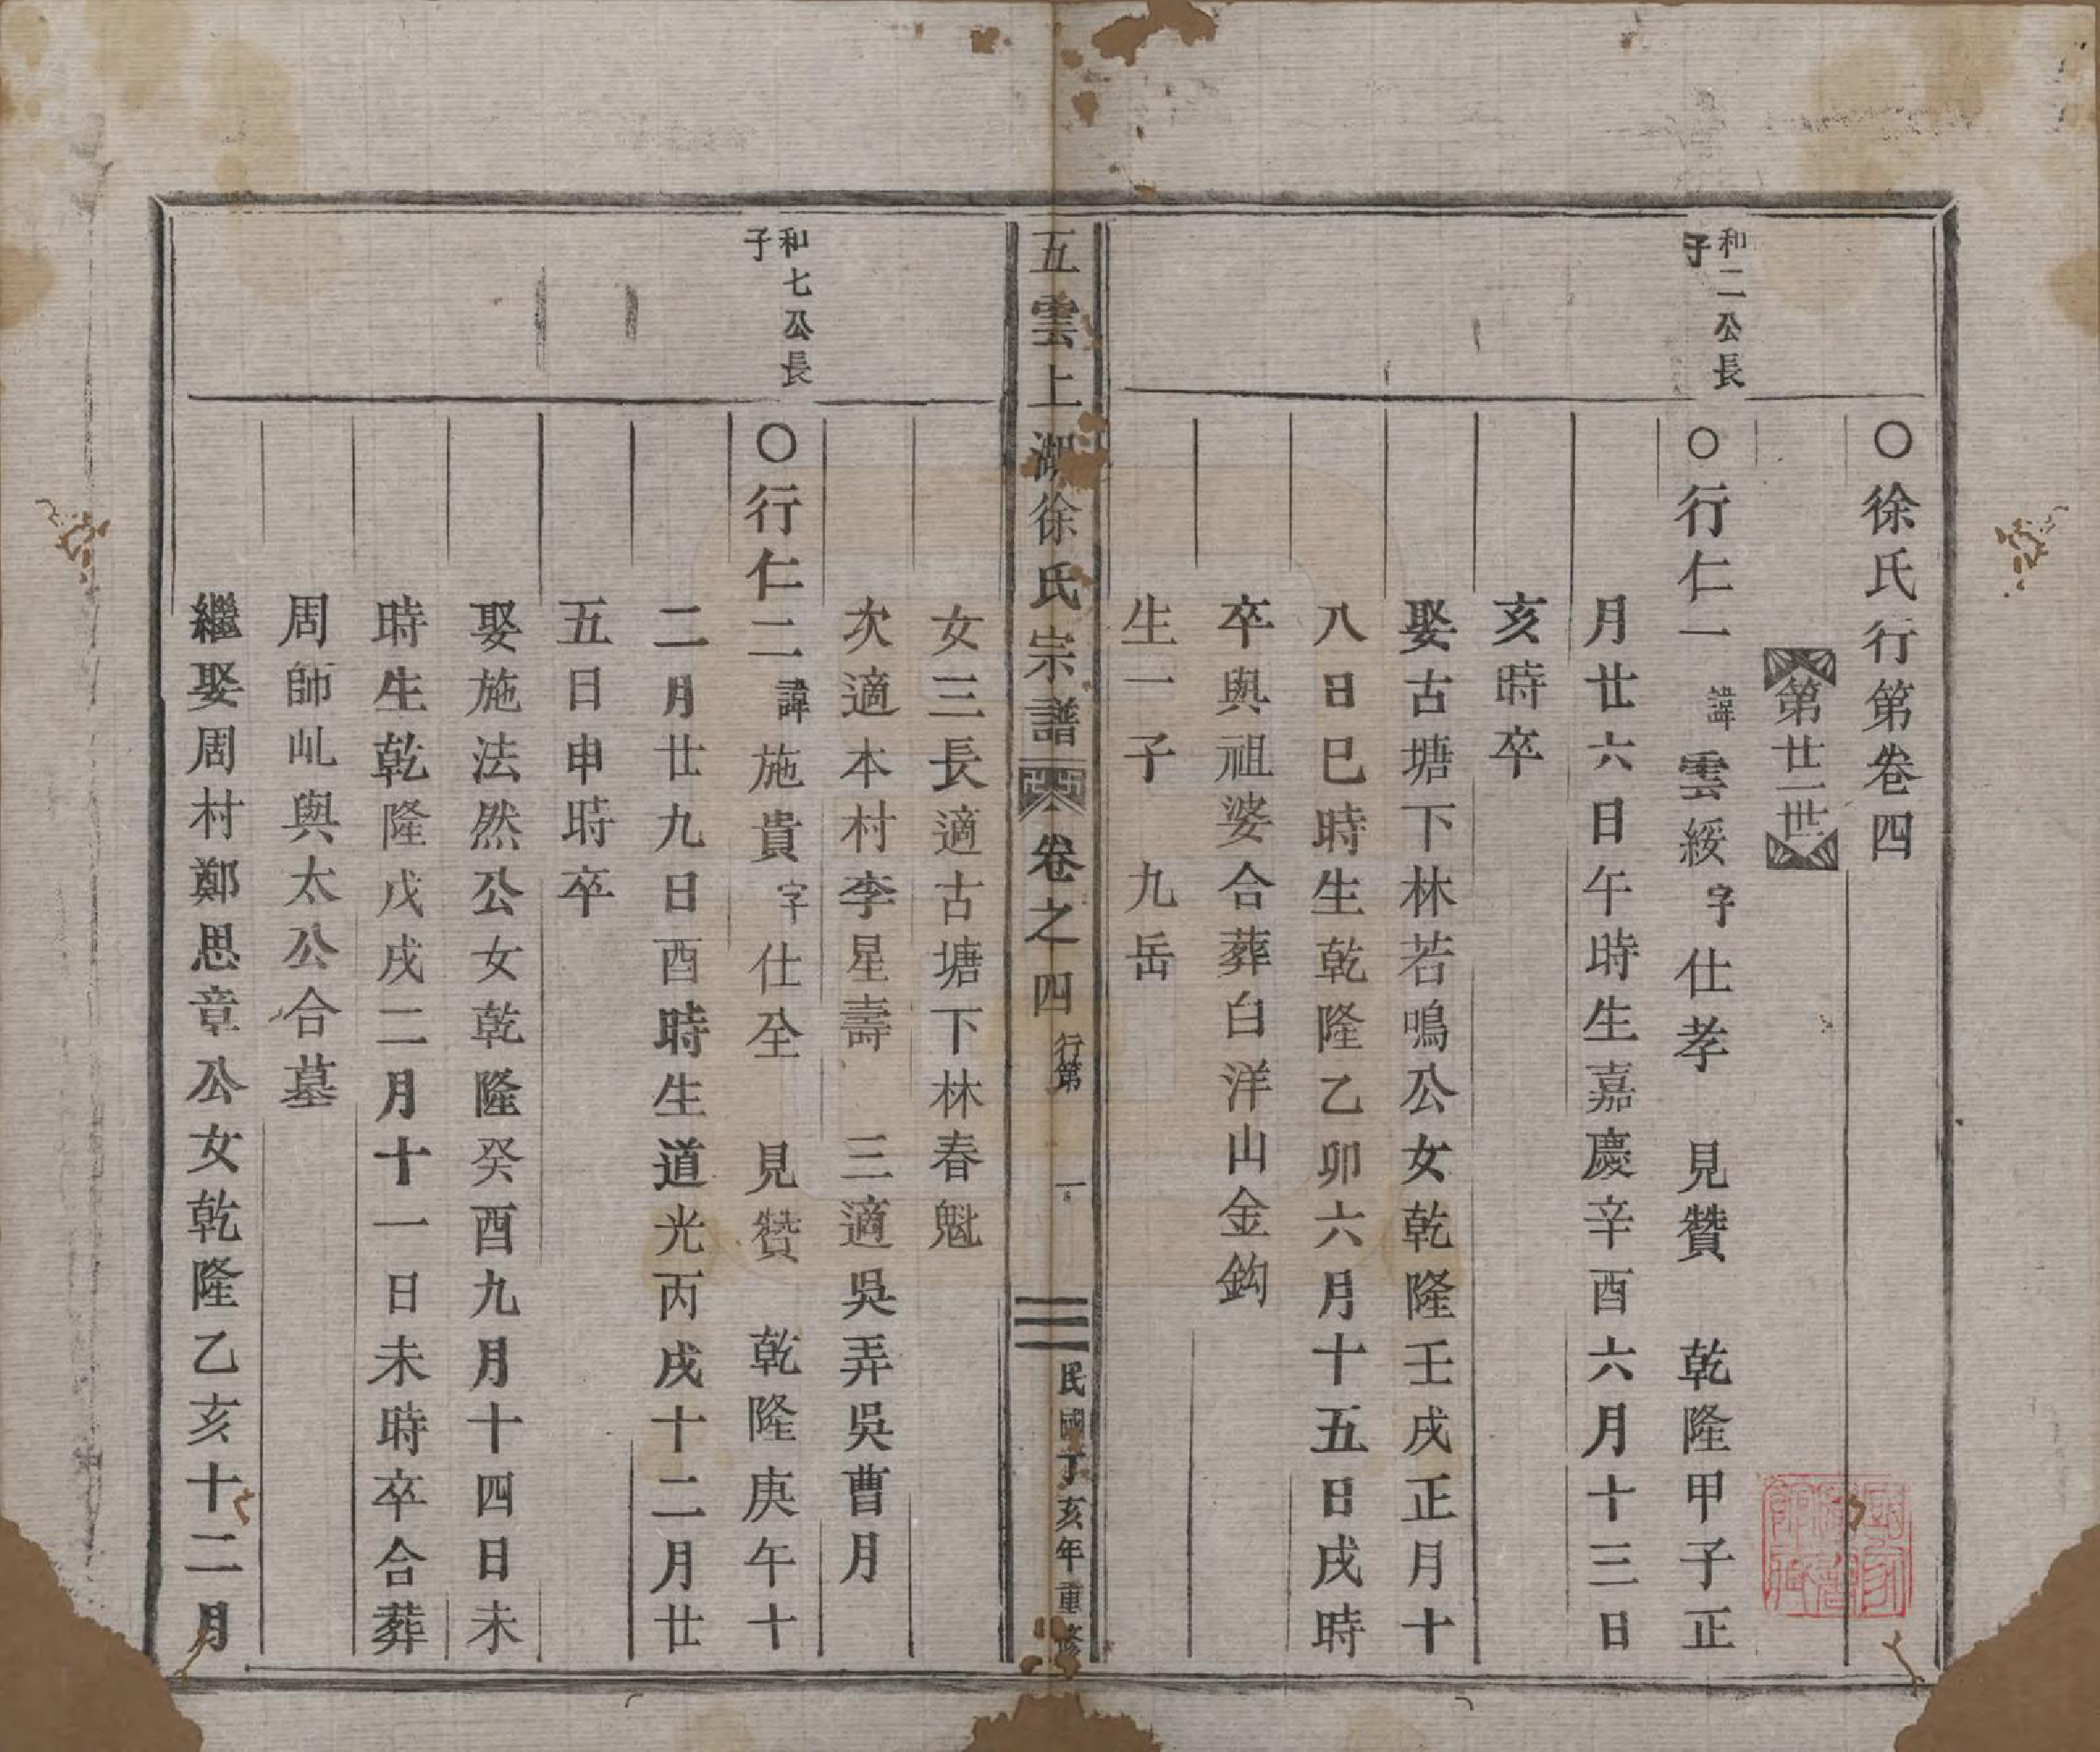 ○徐氏行第卷四
第廿一世
和二公長子
○行仁一 諱雲綏字仕孝 見贊 乾隆甲子正
月廿六日午時生嘉慶辛酉六月十三日
亥時卒
娶古塘下林若鳴公女乾隆壬戌正月十
八日巳時生乾隆乙卯六月十五日戌時
卒與祖婆合葬白洋山金鈎
生一子 九岳
五雲上湖徐氏宗譜 卷之四 行第 一 民國丁亥年重修
女三長適古塘下林春魁
次適本村李星壽 三適吳弄吳曹月
和七公長子
○行仁二諱施貴字仕全 見贊 乾隆庚午十
二月廿九日酉時生道光丙戌十二月廿
五日申時卒
娶施法然公女乾隆癸酉九月十四日未
時生乾隆戊戌二月十一日未時卒合葬
周師乢與太公合墓
繼娶周村鄭思章公女乾隆乙亥十二月